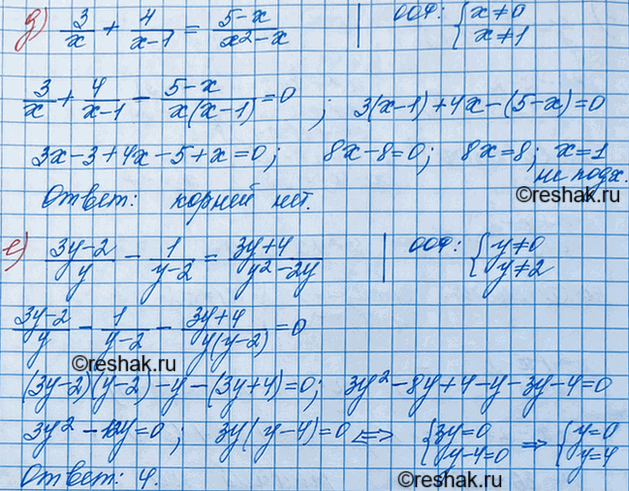 д) 3/x + 4/(x-1) = (5-x)/(x²-x) | ООФ: { x≠0 x≠1
3/x + 4/(x-1) - (5-x)/(x(x-1)) = 0 ; 3(x-1)+4x-(5-x)=0
3x-3+4x-5+x=0; 8x-8=0; 8x=8; x=1
не подх.
©reshak.ru
Ответ: корней нет.
е) (3y-2)/y - 1/(y-2) = (3y+4)/(y²-2y) | ООФ: { y≠0 y≠2
(3y-2)/y - 1/(y-2) - (3y+4)/(y(y-2)) = 0
©reshak.ru
(3y-2)(y-2)-y-(3y+4)=0; 3y²-8y+4-y-3y-4=0
3y²-12y=0; 3y(y-4)=0 <=> { 3y=0 y-4=0 => { y=0 y=4
Ответ: 4.
©reshak.ru